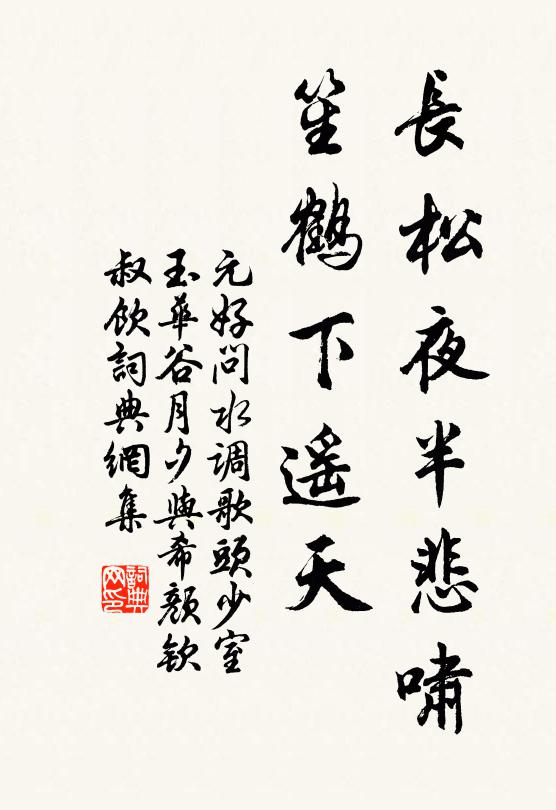 長松夜半悲嘯
笙鶴下遥天
元好問水调歌頭少室
玉華谷月夕與希顏欽
叔飲詞典網集
詞典
网印